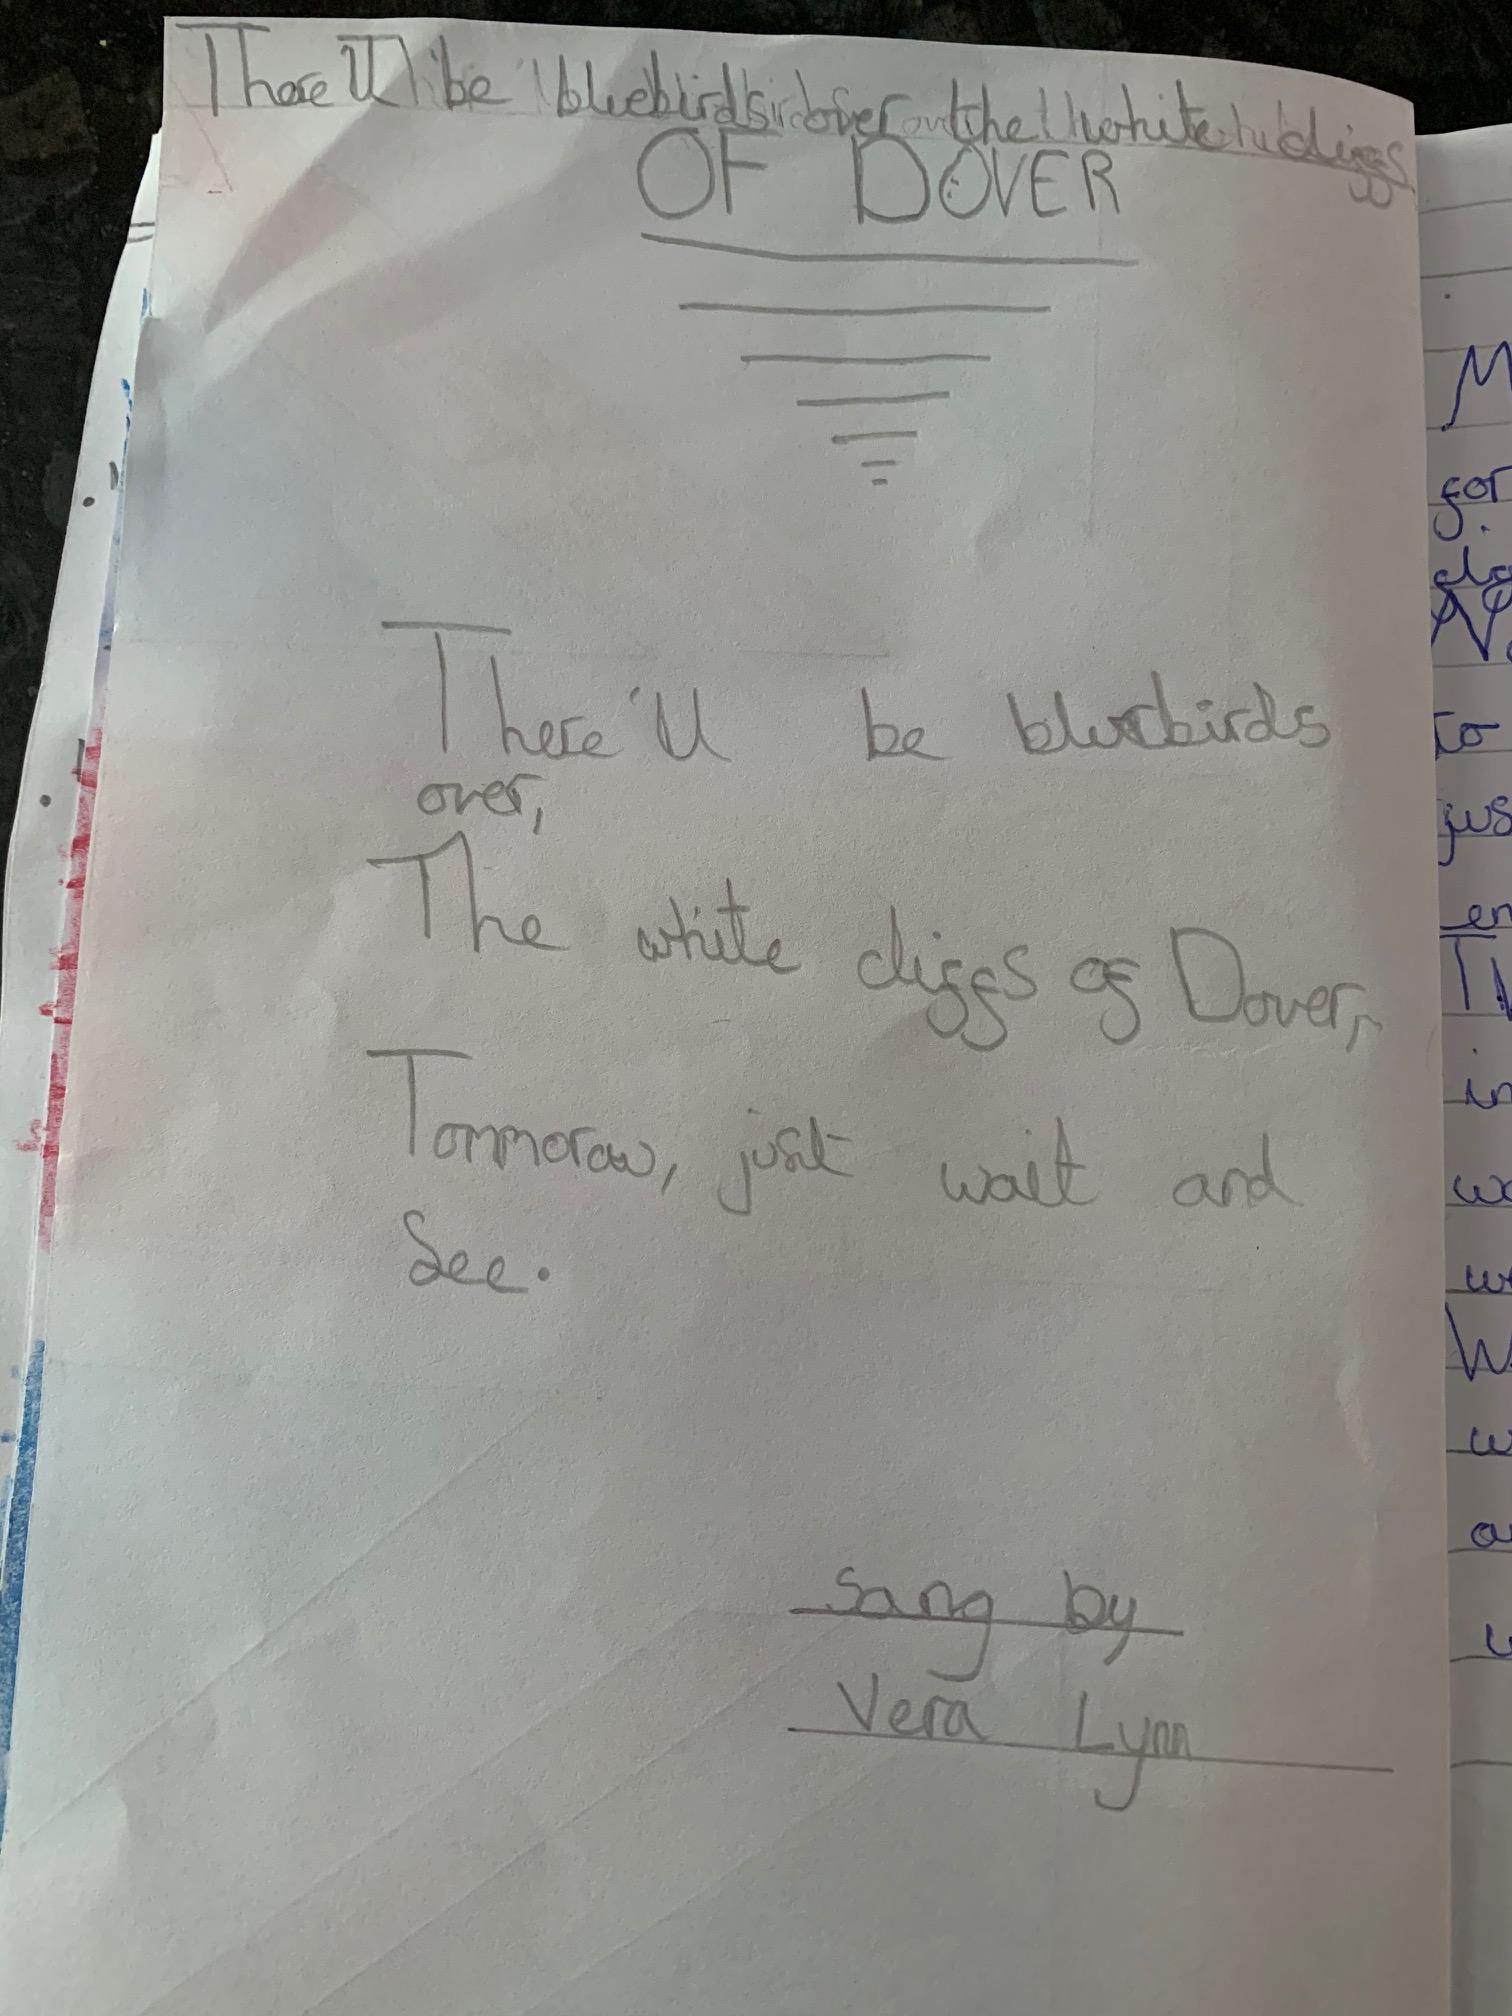 There'll be bluebirds over the white cliffs
OF DOVER
There'll be bluebirds
over,
The white cliffs of Dover,
Tommorow, just wait and
See.
Sang by
Vera Lynn
M
for
to
jus
en
in